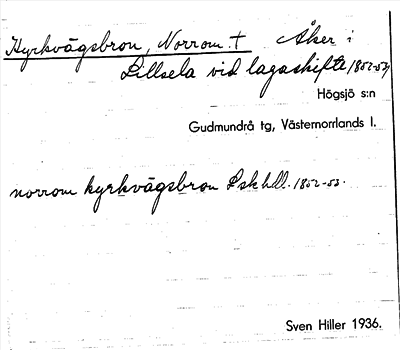 Kyrkvägsbron, Norrom. † Åker i
Lillsela vid lagaskifte 1852-53
Högsjö s:n
Gudmundrå tg, Västernorrlands l.
norrom kyrkvägsbron Lskhdl. 1852-53.
Sven Hiller 1936.